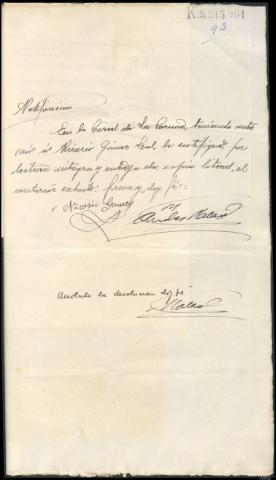 K.5215.991
93
Notificacion
En la Carcel de La Coruña, teniendo ante
mi á Nicasio Gómez Leal, le notifiqué por
lectura integra y entrega de copia literal, el
anterior exhorto: firma y doy fé:
Nicasio Gomez
Anotada la devolucion doy fé